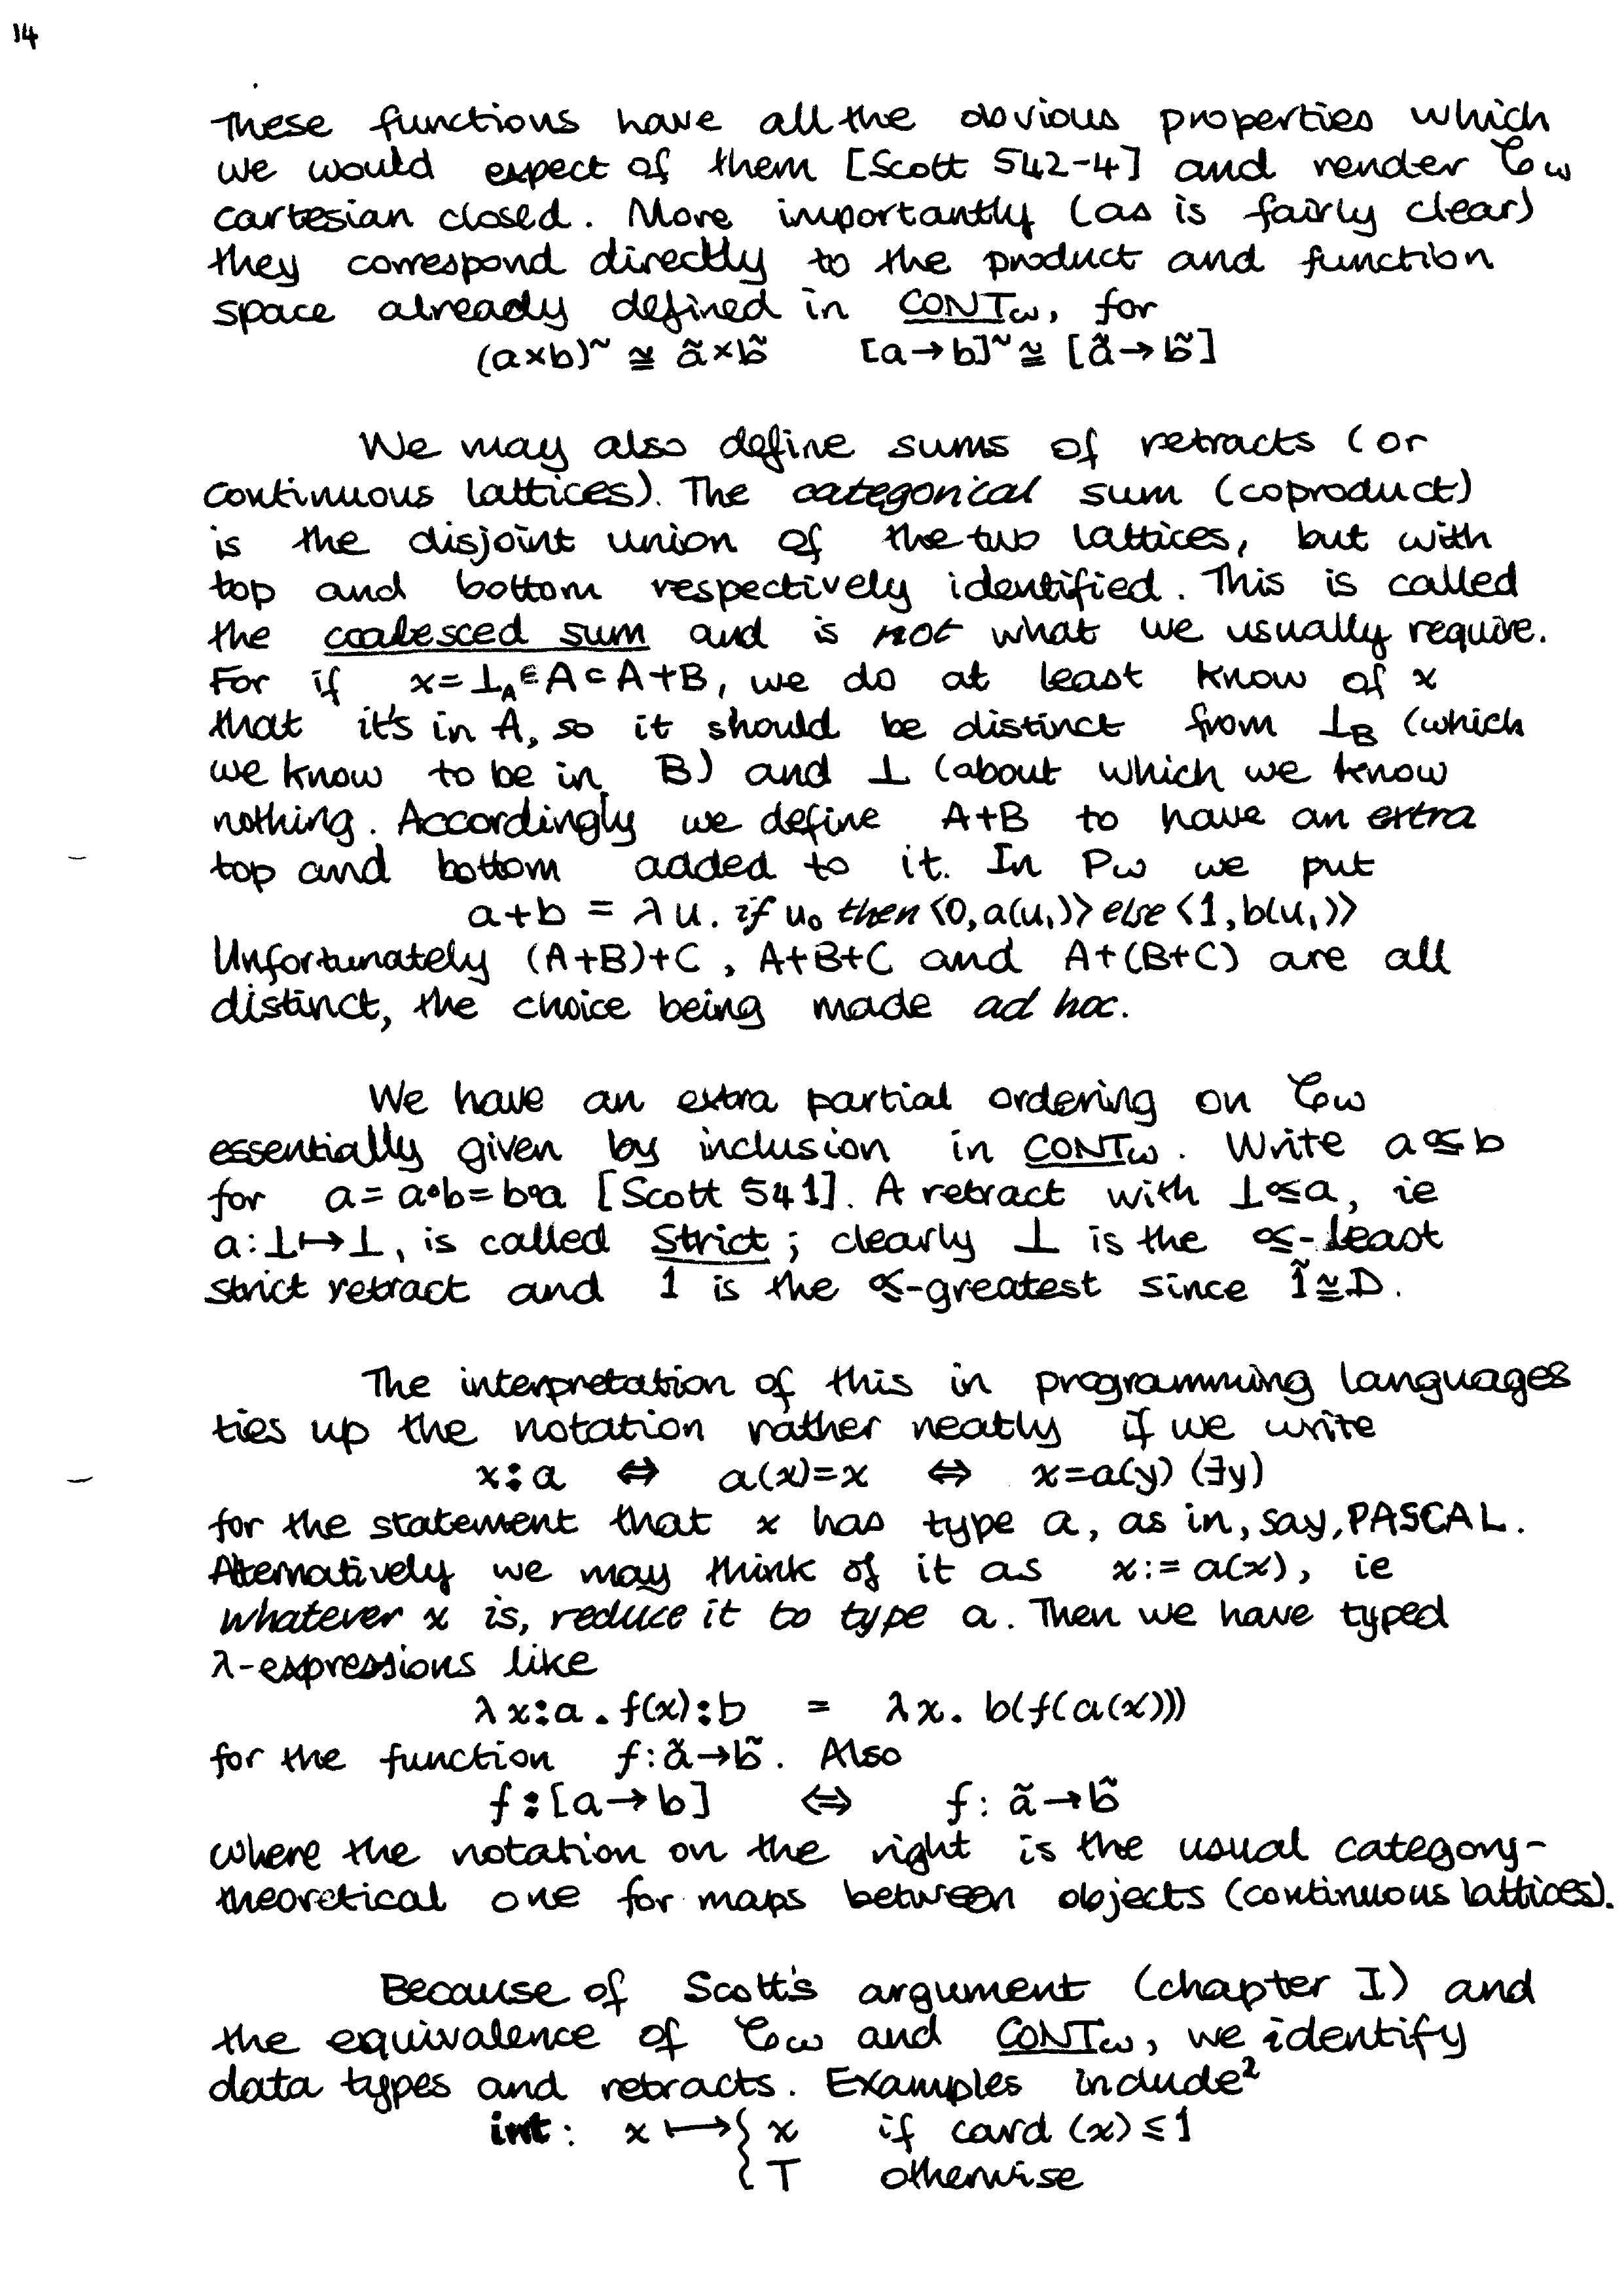 14
These functions have all the obvious properties which
we would expect of them [Scott 542-4] and render 𝒞ω
cartesian closed. More importantly (as is fairly clear)
they correspond directly to the product and function
space already defined in CONTω, for
(a×b)~ ≅ ã×b̃ [a→b]~ ≅ [ã→b̃]
We may also define sums of retracts (or
continuous lattices). The categorical sum (coproduct)
is the disjoint union of the two lattices, but with
top and bottom respectively identified. This is called
the coalesced sum and is not what we usually require.
For if x=⊥_A∈A⊂A+B, we do at least know of x
that it's in A, so it should be distinct from ⊥_B (which
we know to be in B) and ⊥ (about which we know
nothing. Accordingly we define A+B to have an extra
top and bottom added to it. In Pω we put
a+b = λu. if u₀ then ⟨0,a(u₁)⟩ else ⟨1,b(u₁)⟩
Unfortunately (A+B)+C, A+B+C and A+(B+C) are all
distinct, the choice being made ad hoc.
We have an extra partial ordering on 𝒞ω
essentially given by inclusion in CONTω. Write a⊴b
for a=a∘b=b∘a [Scott 541]. A retract with ⊥⊴a, ie
a:⊥↦⊥, is called Strict; clearly ⊥ is the ⊴-least
strict retract and 1 is the ⊴-greatest since 1̃≅D.
The interpretation of this in programming languages
ties up the notation rather neatly if we write
x:a ⇔ a(x)=x ⇔ x=a(y) (∃y)
for the statement that x has type a, as in, say, PASCAL.
Alternatively we may think of it as x:=a(x), ie
whatever x is, reduce it to type a. Then we have typed
λ-expressions like
λx:a.f(x):b = λx. b(f(a(x)))
for the function f:ã→b̃. Also
f:[a→b] ⇔ f: ã→b̃
where the notation on the right is the usual category-
theoretical one for maps between objects (continuous lattices).
Because of Scott's argument (chapter I) and
the equivalence of 𝒞ω and CONTω, we identify
data types and retracts. Examples include²
int: x ↦ { x if card (x) ≤ 1
{ ⊤ otherwise